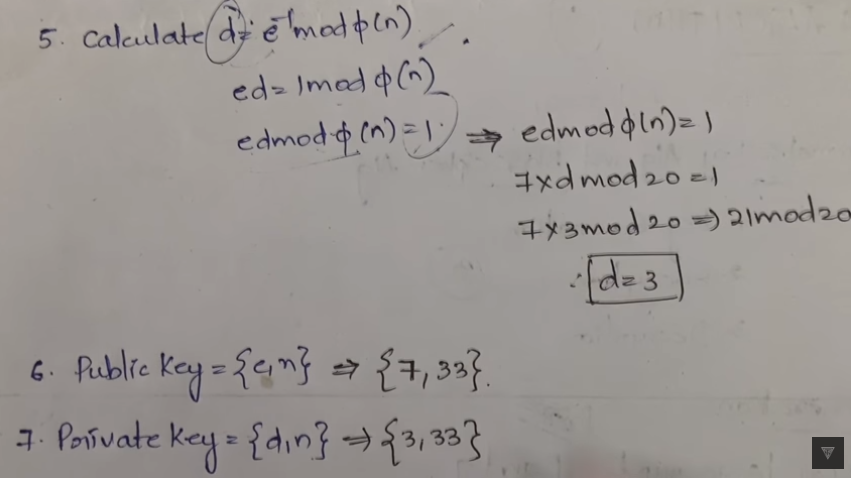 5. Calculate d = e⁻¹ mod ϕ(n).
ed = 1 mod ϕ(n)
ed mod ϕ(n) = 1. ⇒ ed mod ϕ(n) = 1
7 x d mod 20 = 1
7 x 3 mod 20 ⇒ 21 mod 20
∴ d = 3
6. Public Key = {e, n} ⇒ {7, 33}.
7. Private Key = {d, n} ⇒ {3, 33}